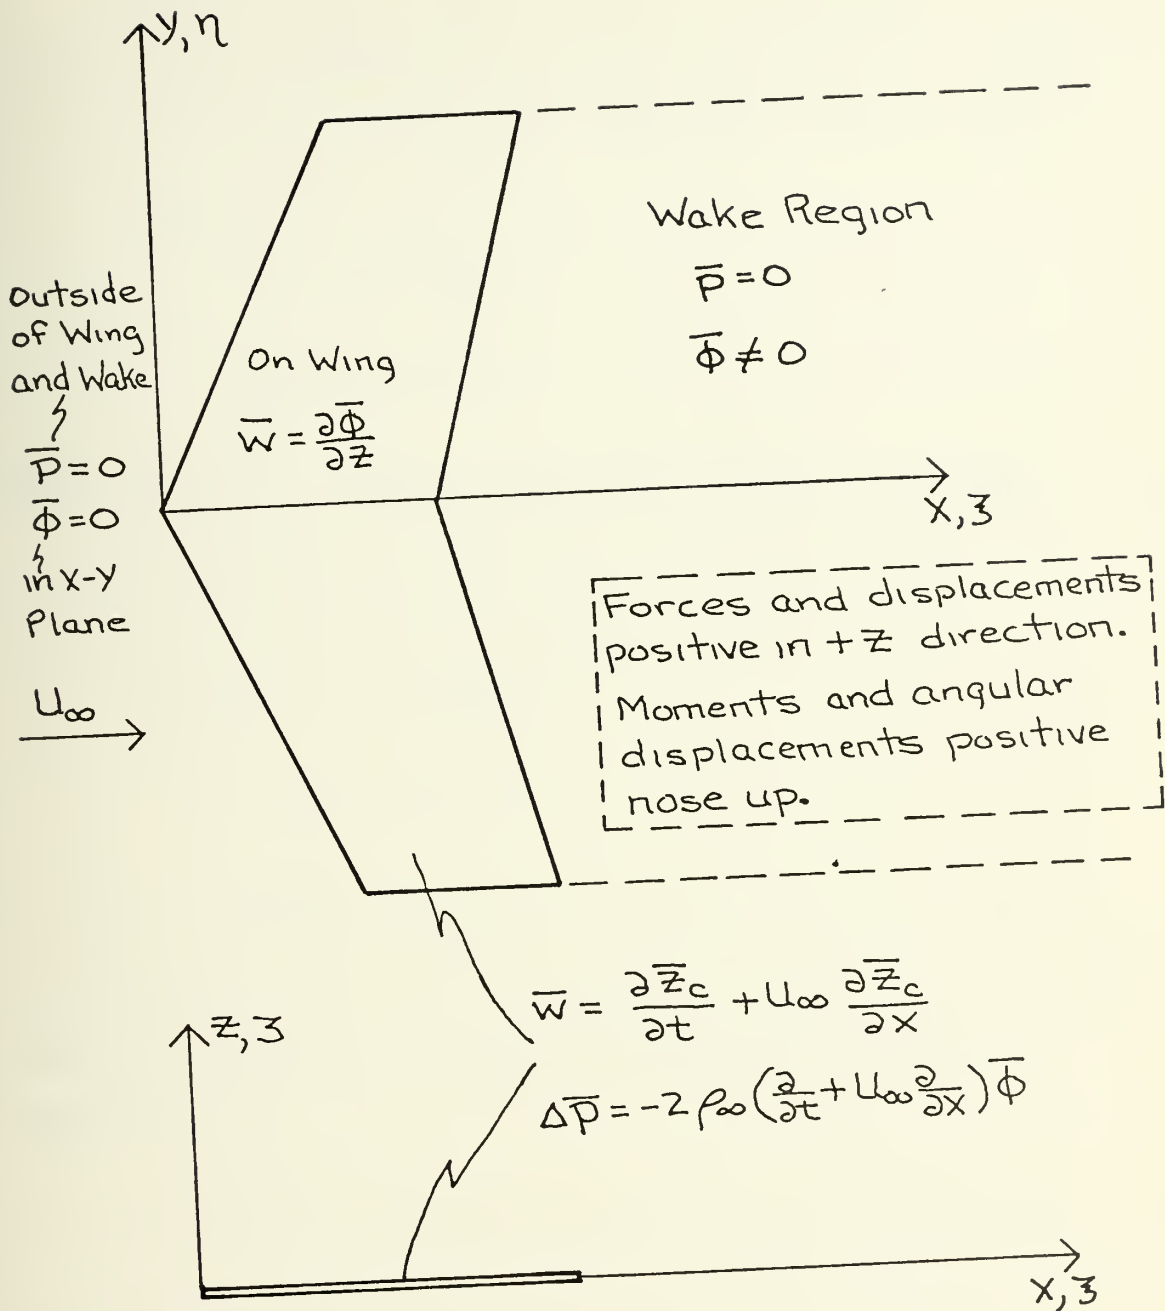 y, η
Wake Region
p̅ = 0
Φ̅ ≠ 0
Outside
of Wing
and Wake
p̅ = 0
Φ̅ = 0
in X-Y
Plane
On Wing
w̅ = ∂Φ̅/∂z
X, ξ
U∞
Forces and displacements
positive in + z direction.
Moments and angular
displacements positive
nose up.
w̅ = ∂z̅c/∂t + U∞ ∂z̅c/∂x
Δp̅ = -2 ρ∞ (∂/∂t + U∞ ∂/∂x) Φ̅
z, ʒ
X, ξ